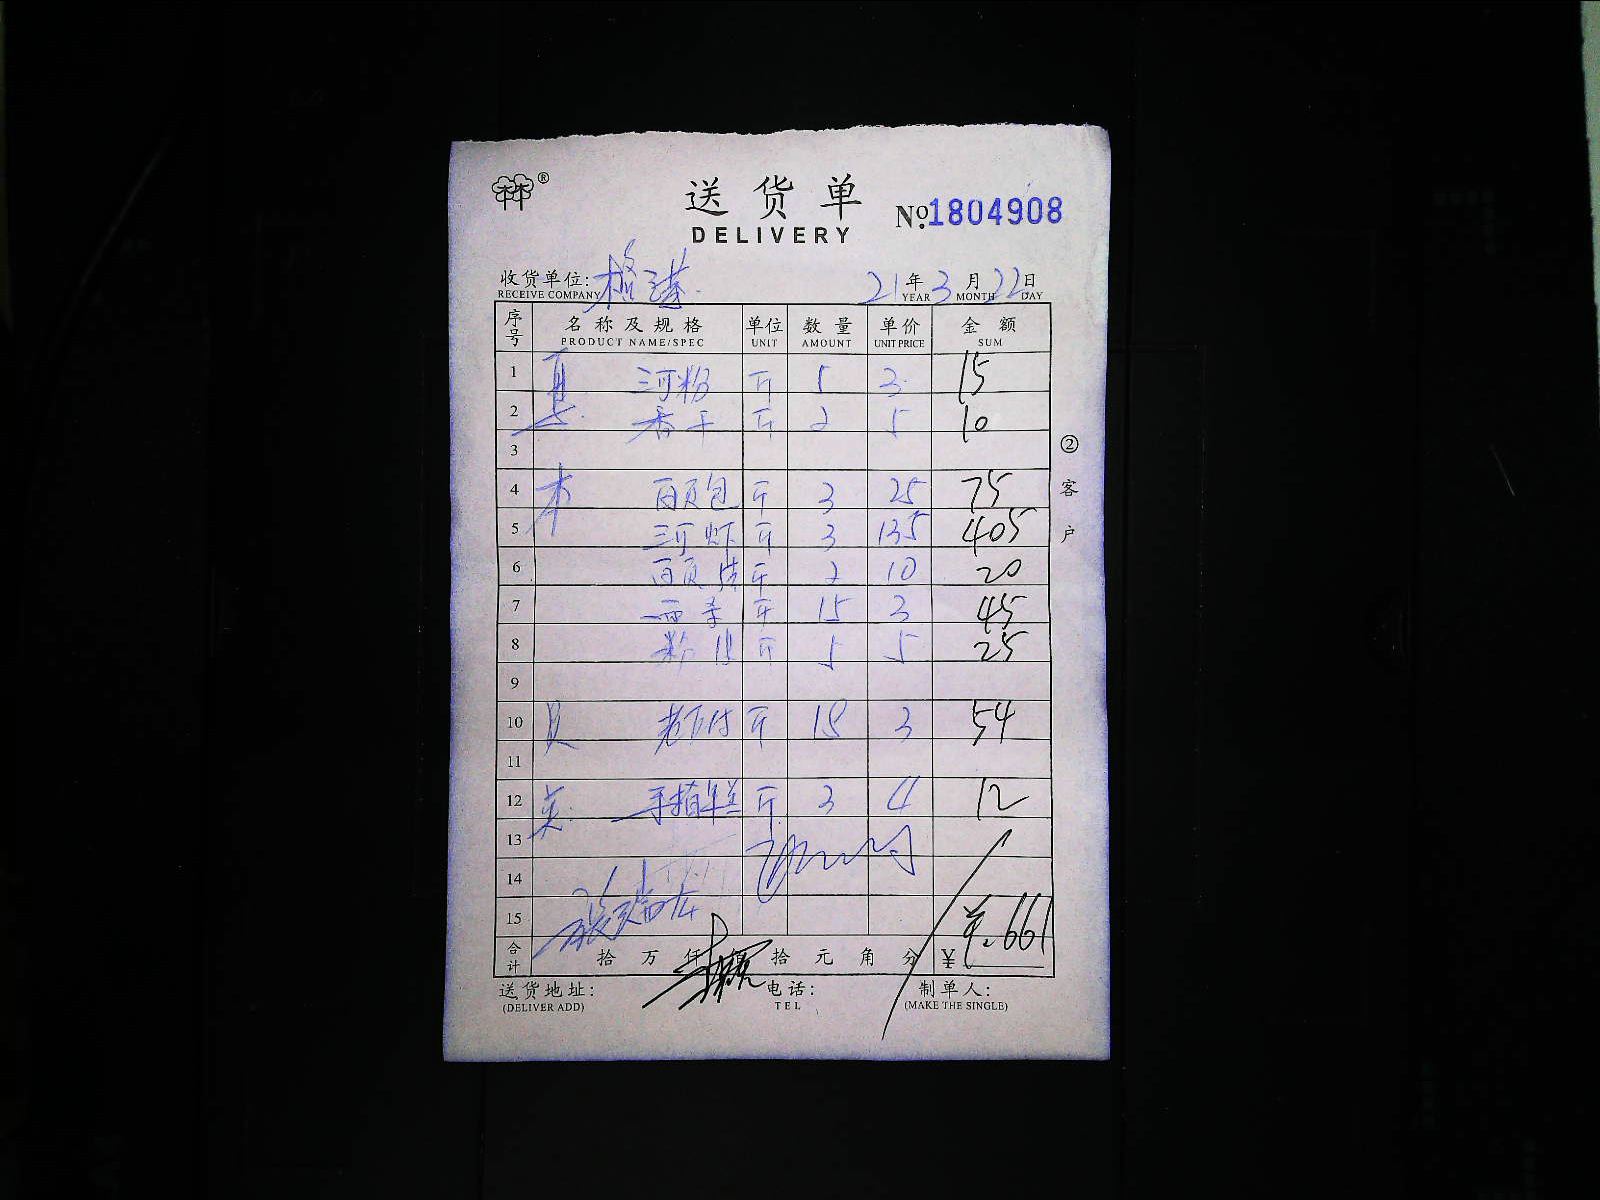 ®
送货单
DELIVERY
No. 1804908
收货单位: 格
21年3月22日
RECEIVE COMPANY YEAR MONTH DAY
序号 名称及规格 单位 数量 单价 金额
PRODUCT NAME/SPEC UNIT AMOUNT UNIT PRICE SUM
1 河粉 斤 5 3 15
2 香干 斤 2 5 10
3
4 本 百页包 斤 3 25 75
5 河虾 斤 3 135 405
6 百页结 斤 2 10 20
7 斤 15 3 45
8 粉 斤 5 5 25
9
10 斤 18 3 54
11
12 英 年 斤 3 4 12
13
14
15 ¥.661
合计 拾 万 仟 佰 拾 元 角 分 ¥
送货地址: 电话: 制单人:
(DELIVER ADD) TEL (MAKE THE SINGLE)
②客户